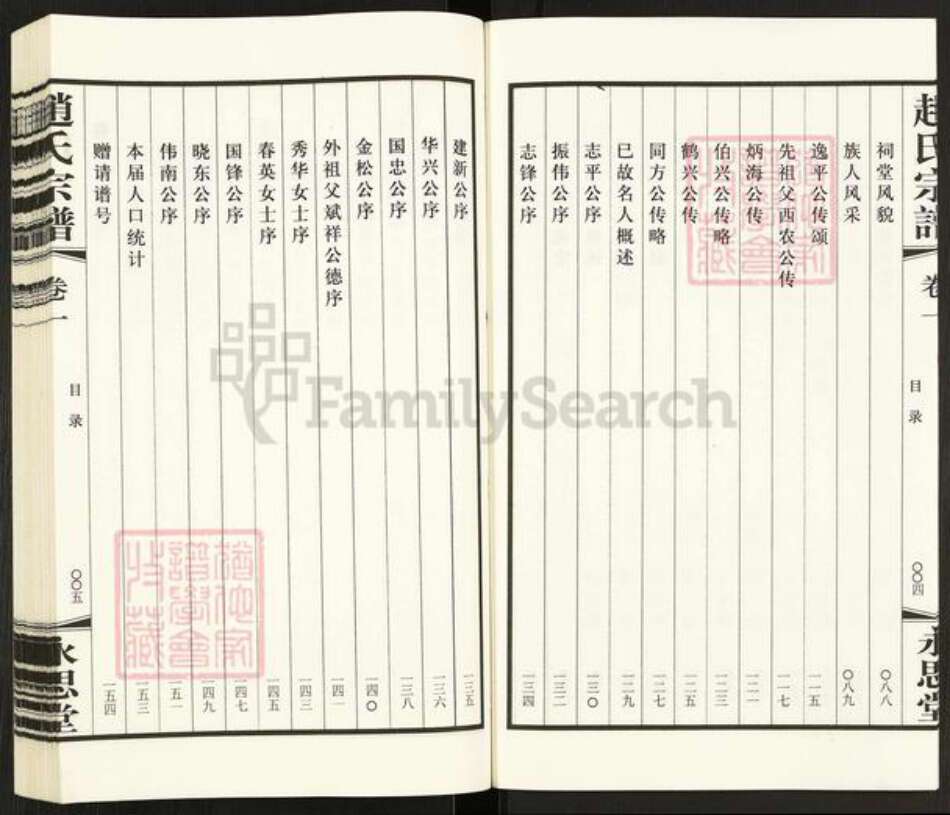 趙氏宗譜
卷一
目录
〇〇四
永思堂
祠堂风貌 〇八八
族人风采 〇八九
逸平公传颂 一一五
先祖父西农公传 一一七
炳海公传 一二一
伯兴公传略 一二三
鹤兴公传 一二五
同方公传略 一二七
已故名人概述 一二九
志平公序 一三〇
振伟公序 一三二
志锋公序 一三四
建新公序 一三五
华兴公序 一三六
国忠公序 一三八
金松公序 一四〇
外祖父斌祥公德序 一四一
秀华女士序 一四三
春英女士序 一四五
国锋公序 一四七
晓东公序 一四九
伟南公序 一五一
本届人口统计 一五三
赠请谱号 一五四
趙氏宗譜
卷一
目录
〇〇五
永思堂
FamilySearch